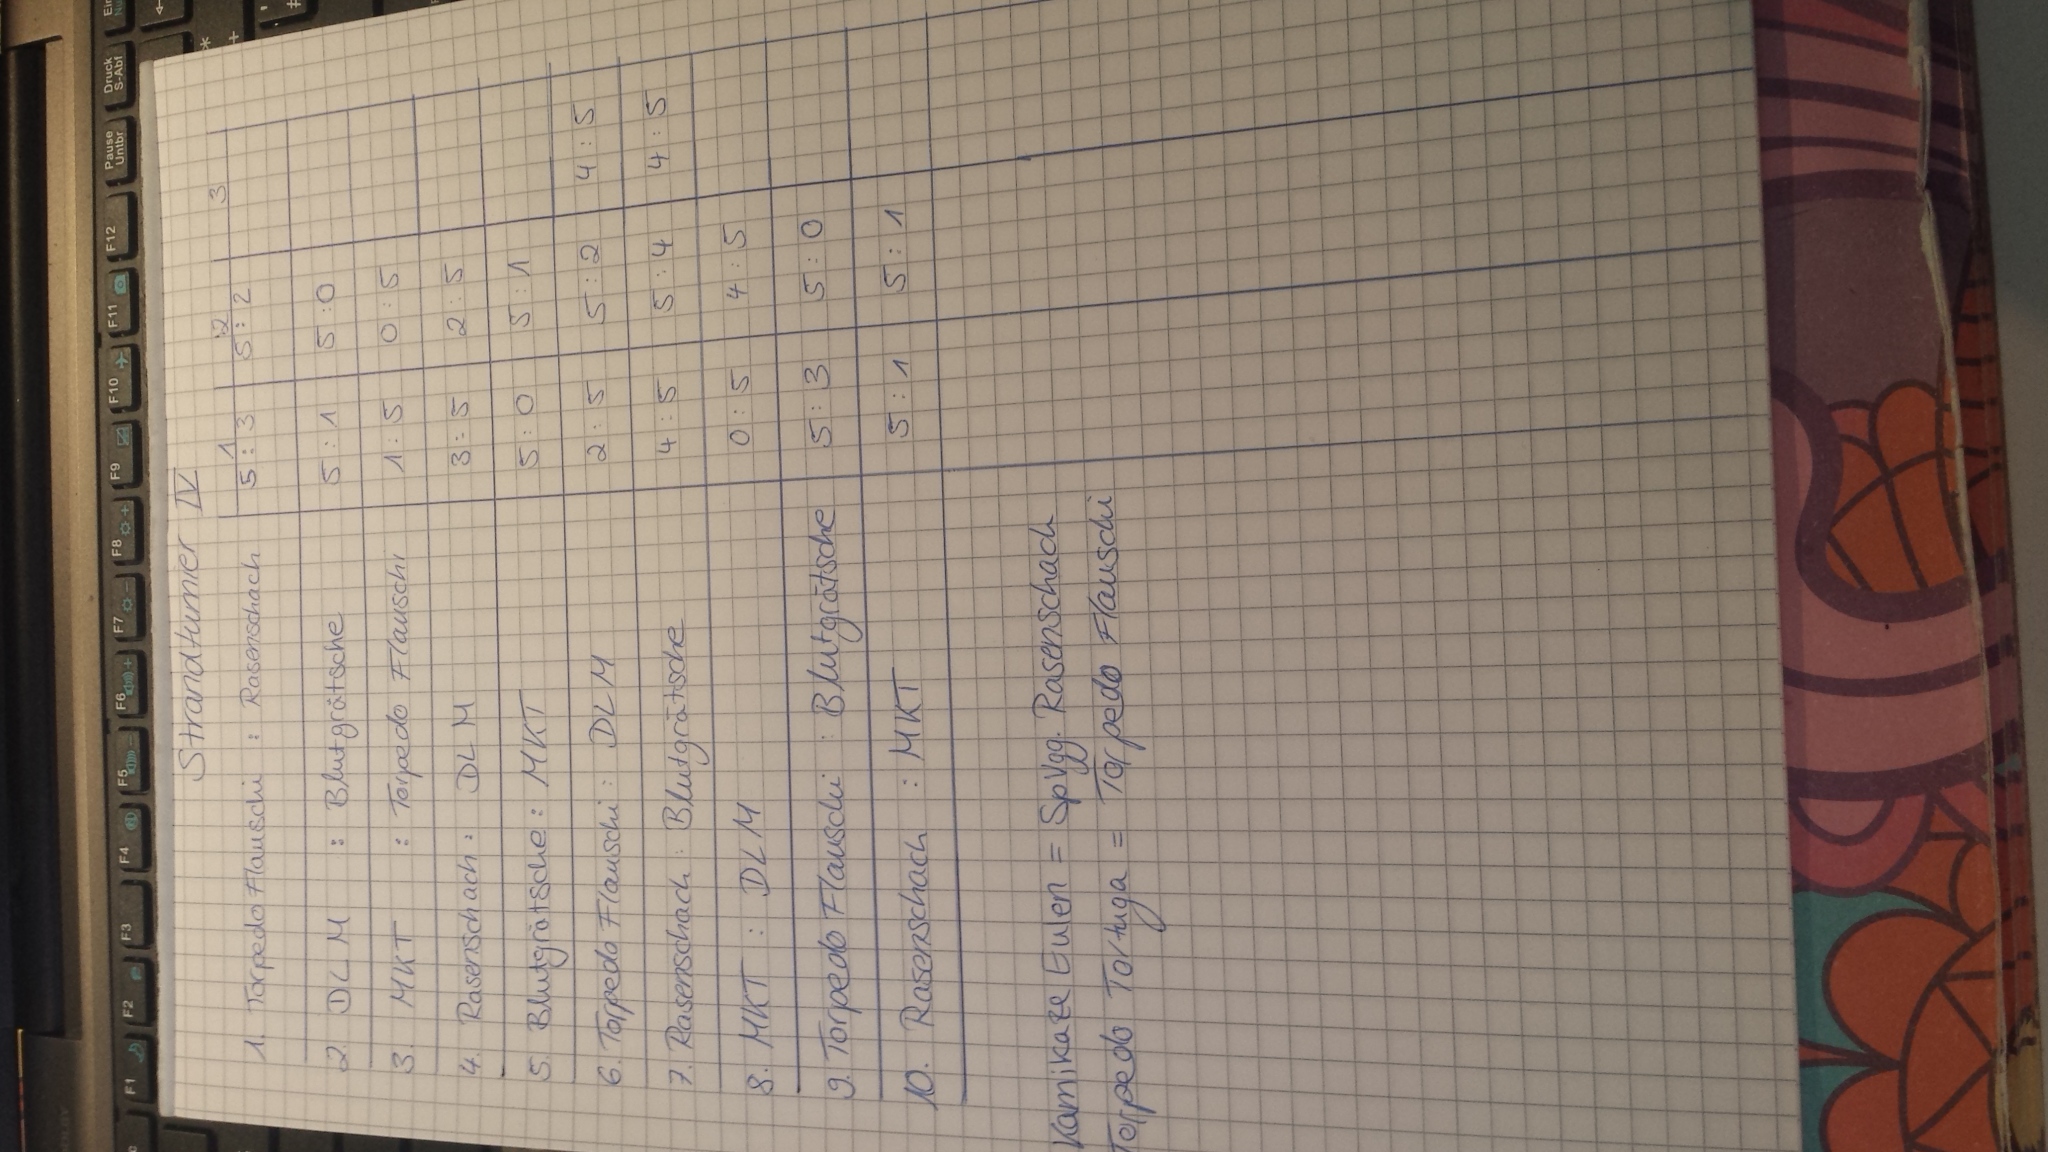 F1 F2 F3 F4 F5 F6 F7 F8 F9 F10 F11 F12 Pause Untbr Druck S-Abf
Strandturnier IV
1 2 3
1. Torpedo Flauschi : Rasenschach 5:3 5:2
2. DLM : Blutgrätsche 5:1 5:0
3. MKT : Torpedo Flauschi 1:5 0:5
4. Rasenschach : DLM 3:5 2:5
5. Blutgrätsche : MKT 5:0 5:1
6. Torpedo Flauschi : DLM 2:5 5:2 4:5
7. Rasenschach : Blutgrätsche 4:5 5:4 4:5
8. MKT : DLM 0:5 4:5
9. Torpedo Flauschi : Blutgrätsche 5:3 5:0
10. Rasenschach : MKT 5:1 5:1
Kamikaze Eulen = SpVgg. Rasenschach
Torpedo Tortuga = Torpedo Flauschi